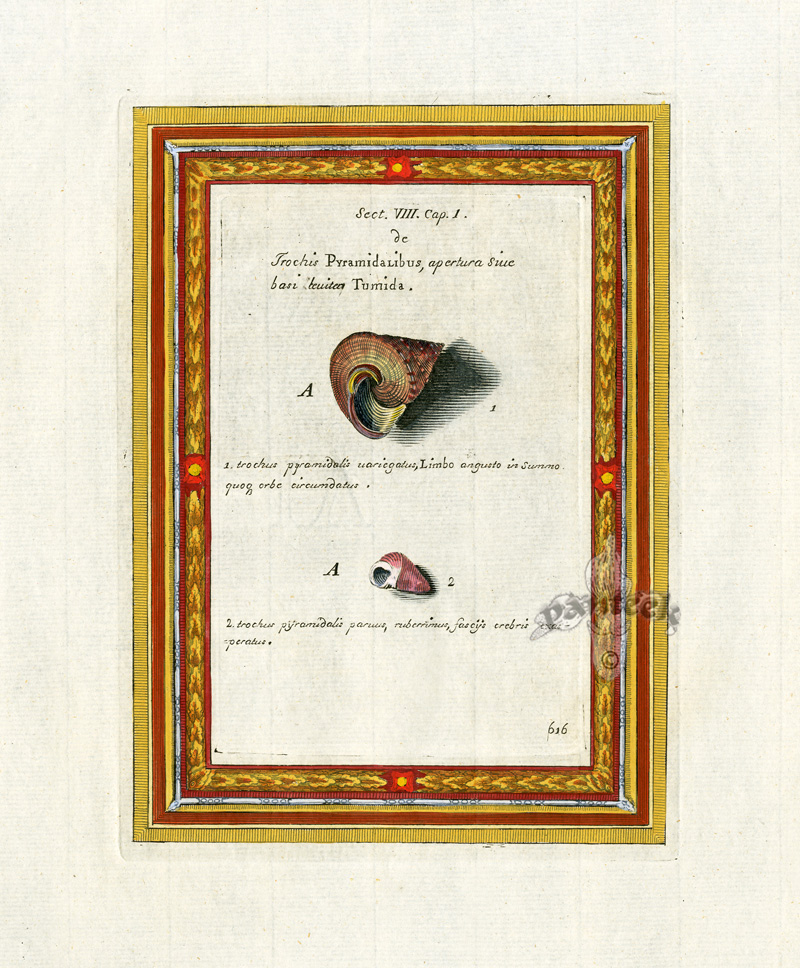 Sect. VIII. Cap. 1.
de
Trochis Pyramidalibus, apertura Siue
basi leuiter Tumida.
A
1
1. trochus pyramidalis uariegatus, Limbo angusto in Summo
quoq orbe circumdatus.
A
2
2. trochus pyramidalis paruus, ruberrimus, fascijs crebris exas-
-peratus.
panteek
©
616